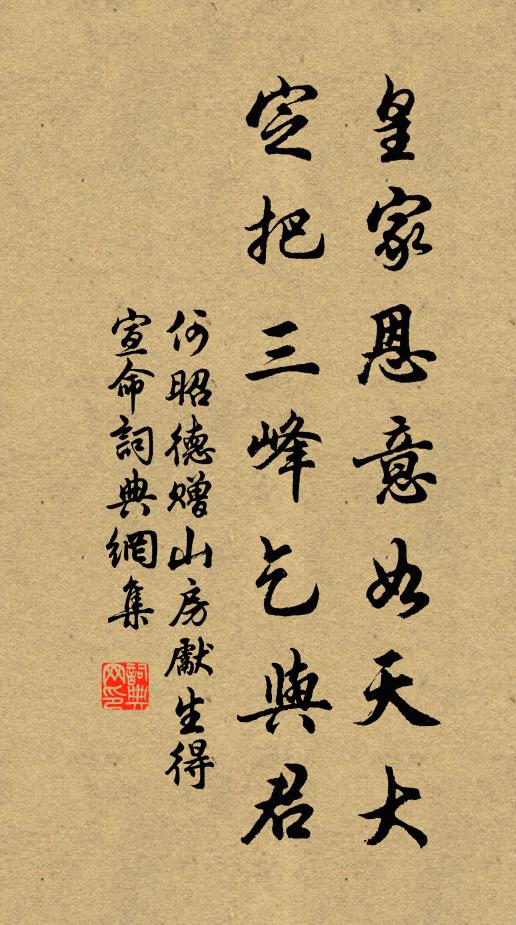 皇家恩意如天大
定把三峰乞與君
何昭德贈山房獻生得
宣命詞典網集
詞典
网印